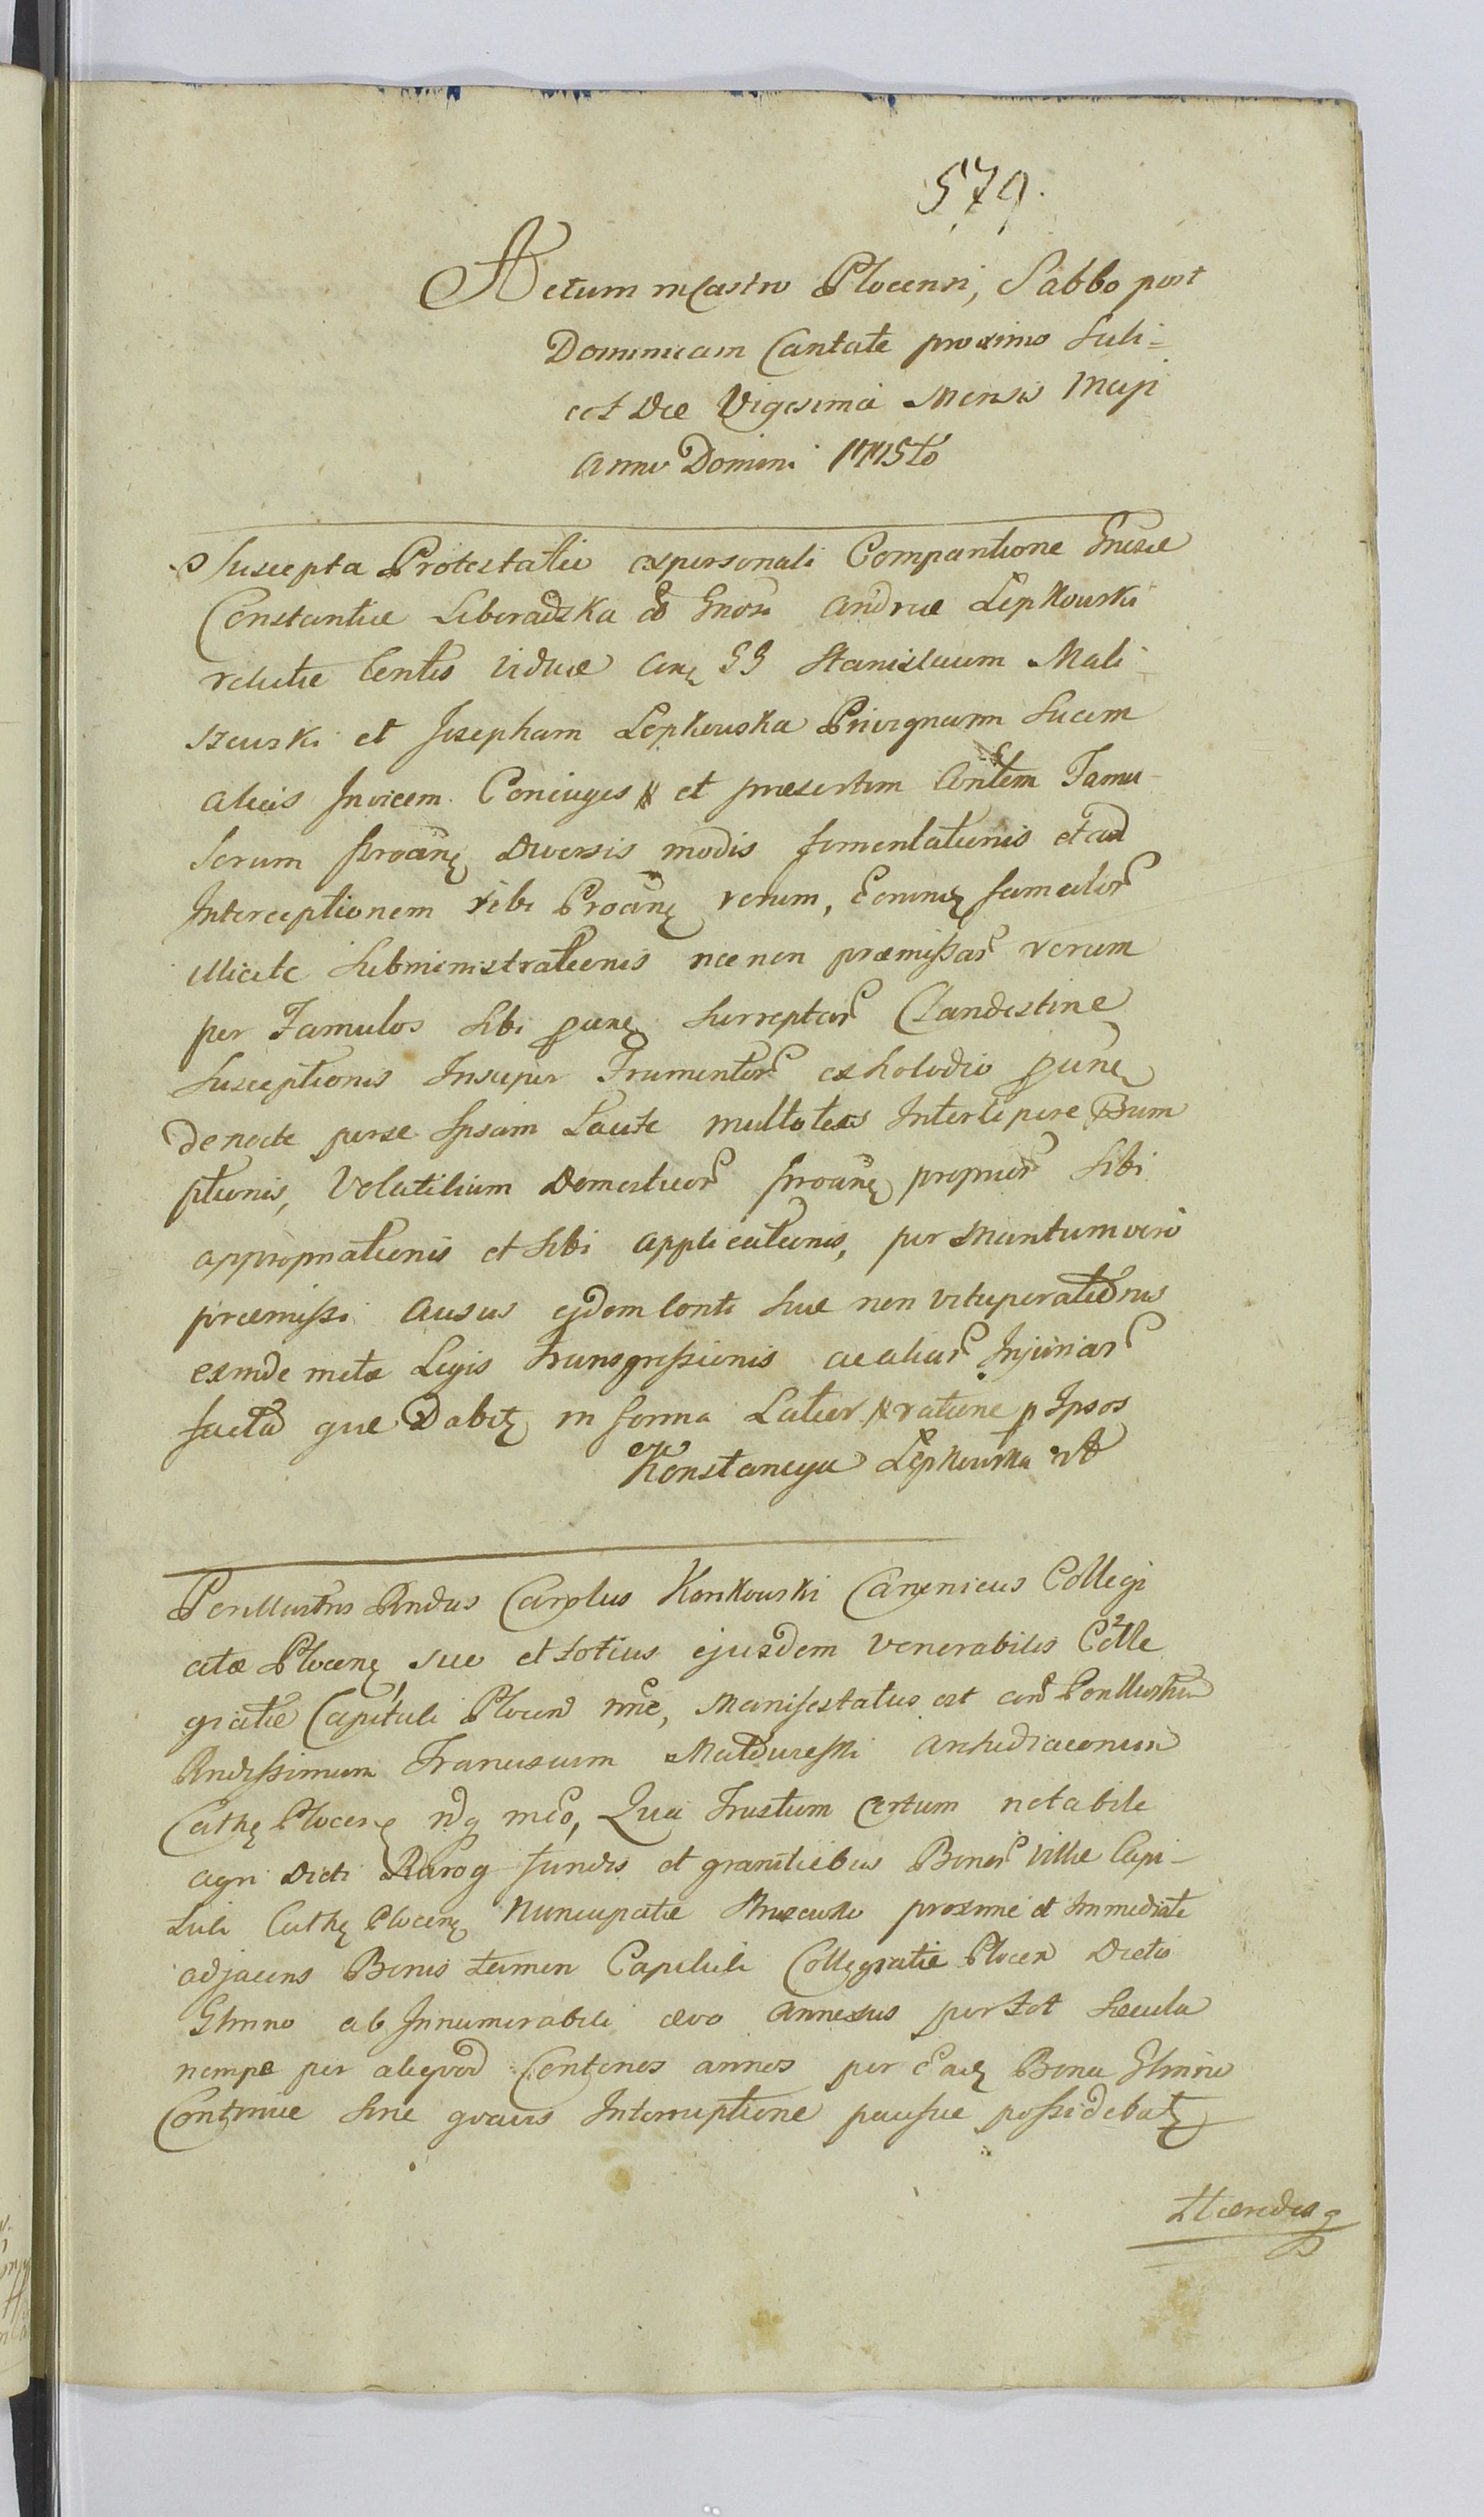 579.
Actum in Castro Plocensi, Sabbo post
Dominicam Cantate proximo Scili=
cet Die Vigesima Mensis Maji
Anno Domini 1775to
Suscepta Protestatio ex personali Comparitione Gnosæ
Constantiæ Liberadzka Gnosi Andreæ Lępkowski
relictæ Contis viduæ GG Stanislaum Mali-
szewski et Josepham Lepkowska Privignam Suam
alias Invicem Coniuges et præsertim Contem Famu-
lorum Proanę Diversis modis fomentationis et ad
Interceptionem sibi Proanę rerum, famulor
illicite Subministrationis nec non præmissar rerum
per Famulos sibi surreptar Clandestine
Susceptionis Insuper Frumentor ex holodio
de nocte per se Ipsam Laute multoties Intercipere
ptionis, Volatilium Domesticor Proanę proprior sibi
appropriationis et sibi applicationis, per Maritum vero
præmissi ausus ejdem Conti suæ non vituperationis
exinde metæ Legis transgressionis ac aliar Injuriar
facta quæ Dabitę in forma Latior ratione p Ipsos
Konstancya Lępkowska
Perillustris Rndus Carolus Konkowski Canonicus Collegi
atæ Plocenę suo et totius ejusdem venerabilis Colle
giatæ Capituli Plocen nne, Manifestatus est con Perillustrem
Rndissimum Franciscum Archidiaconum
Cathę Plocenę Quia Frustum certum notabile
agri Dicti Rarog fundis et granitiebus Bonor Villæ Capi-
tuli Cathę Plocenę Nuncupatæ proxime et Immediate
adjacens Bonis tamen Capituli Collegiatæ Plocen Dictis
Glinno ab Innumerabili ævo annexus per tot Sæcula
nempe per aliquod Centenos annos per Bona Glinno
Continue sine quavis Interruptione pausue possidebatę
Hæredesq